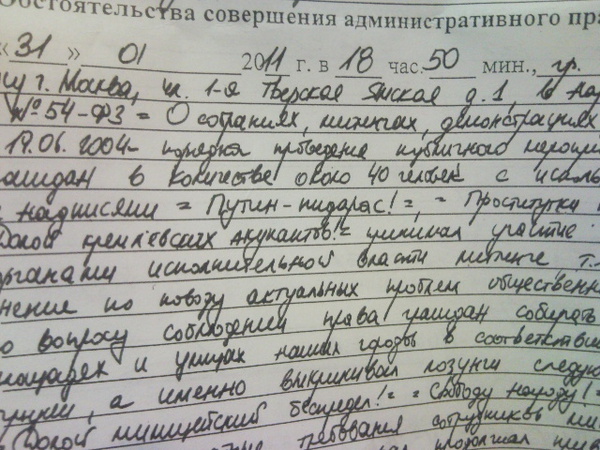 Обстоятельства совершения административного пра
«31» 01 2011 г. в 18 час. 50 мин., гр.
г. Москва, ул. 1-я Тверская Ямская д. 1, в нар
№ 54-ФЗ = О собраниях, митингах, демонстрациях
19.06.2004 порядка проведения публичного меропри
раждан в количестве около 40 человек с исполь
с надписями = Путин-пидарас! =, = Проститутки
Долой кремлёвских оккупантов! = принимал участие
органами исполнительной власти митинге т.
нение по поводу актуальных проблем общественно
о вопросу соблюдении права граждан собирать
лощадях и улицах наших городов в соответствии
туции, а именно выкрикивал лозунги следую
= Долой милицейский беспредел! = = Свободу народу! =
требования сотрудников ми
продолжал